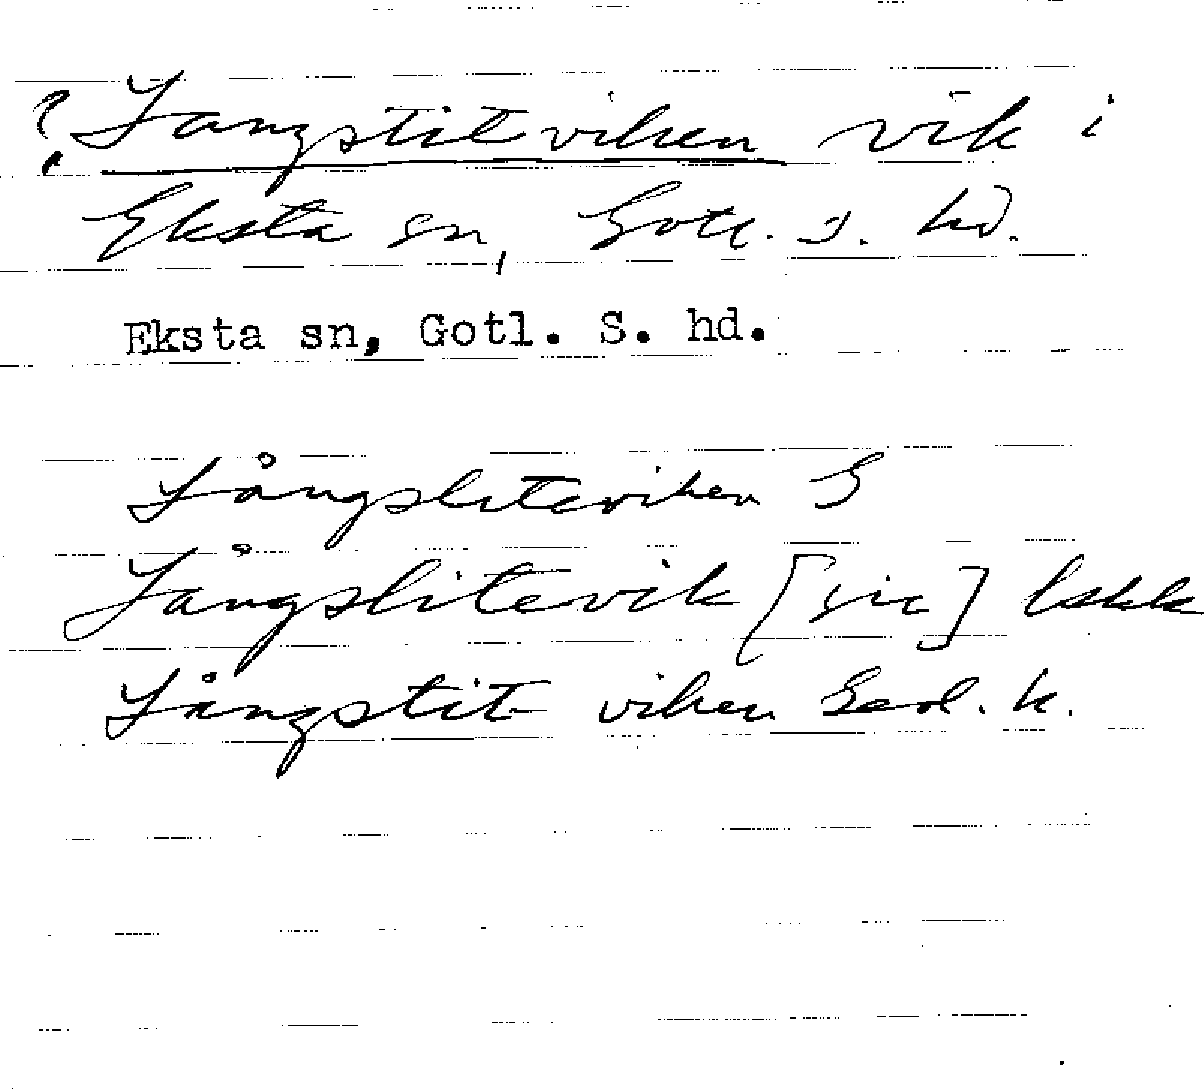 ? Langstitviken vik i
Eksta sn, Gotl. s. hd.
Eksta sn, Gotl. S. hd.
Långsliteviken G
Långslitevik [sic]
Långstit viken Geol. k.